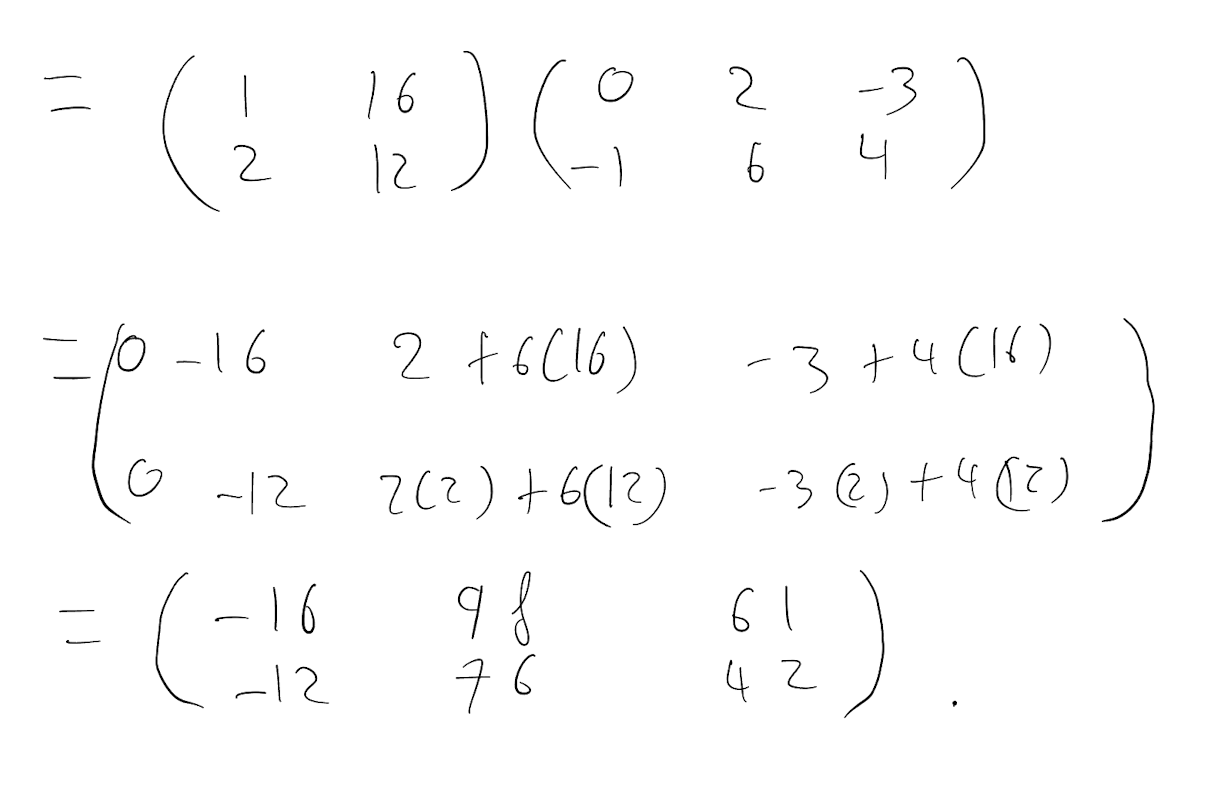 = ( 1 16 ) ( 0 2 -3 )
( 2 12 ) ( -1 6 4 )
= ( 0 -16 2 + 6(16) -3 + 4(16) )
( 0 -12 2(2) + 6(12) -3(2) + 4(12) )
= ( -16 98 61 )
( -12 76 42 ) .